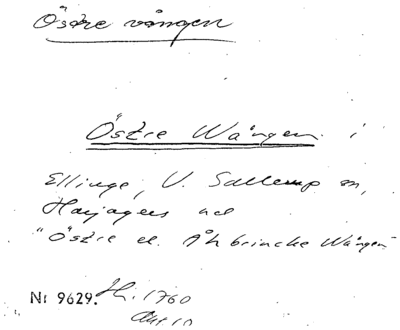 Östre vången
Östre Wången i
Ellinge, V. Sallerup sn,
Harjagers hd
"Östre el. Åhbrincke Wången"
Nr 9629. Hi. 1760
Akt 10